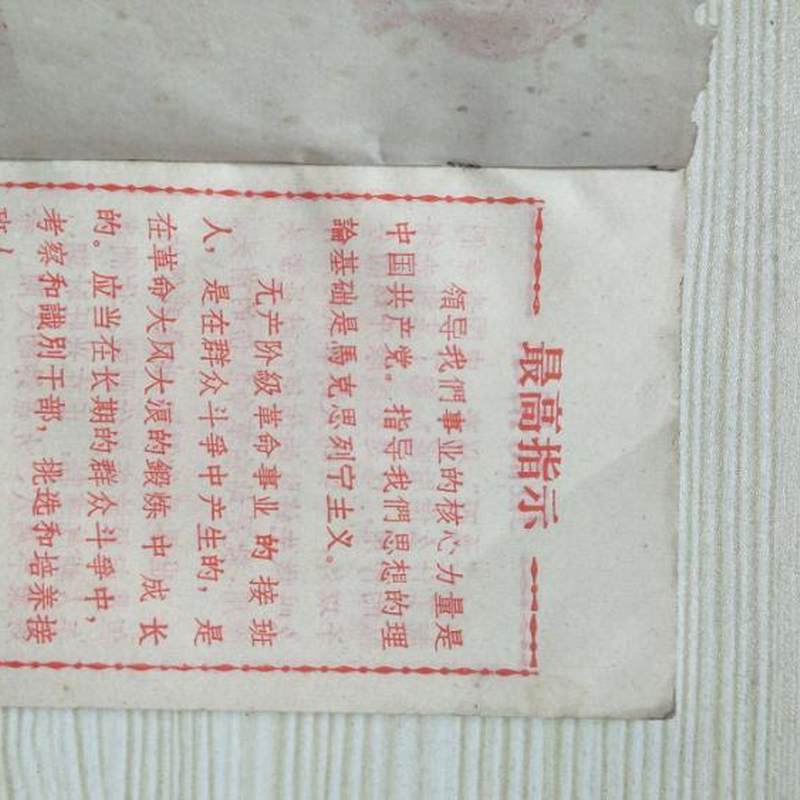 最高指示
領导我們事业的核心力量是
中国共产党。指导我們思想的理
論基础是馬克思列宁主义。
无产阶級革命事业的接班
人，是在群众斗爭中产生的，是
在革命大风大浪的鍛炼中成长
的。应当在长期的群众斗爭中，
考察和識别干部，挑选和培养接